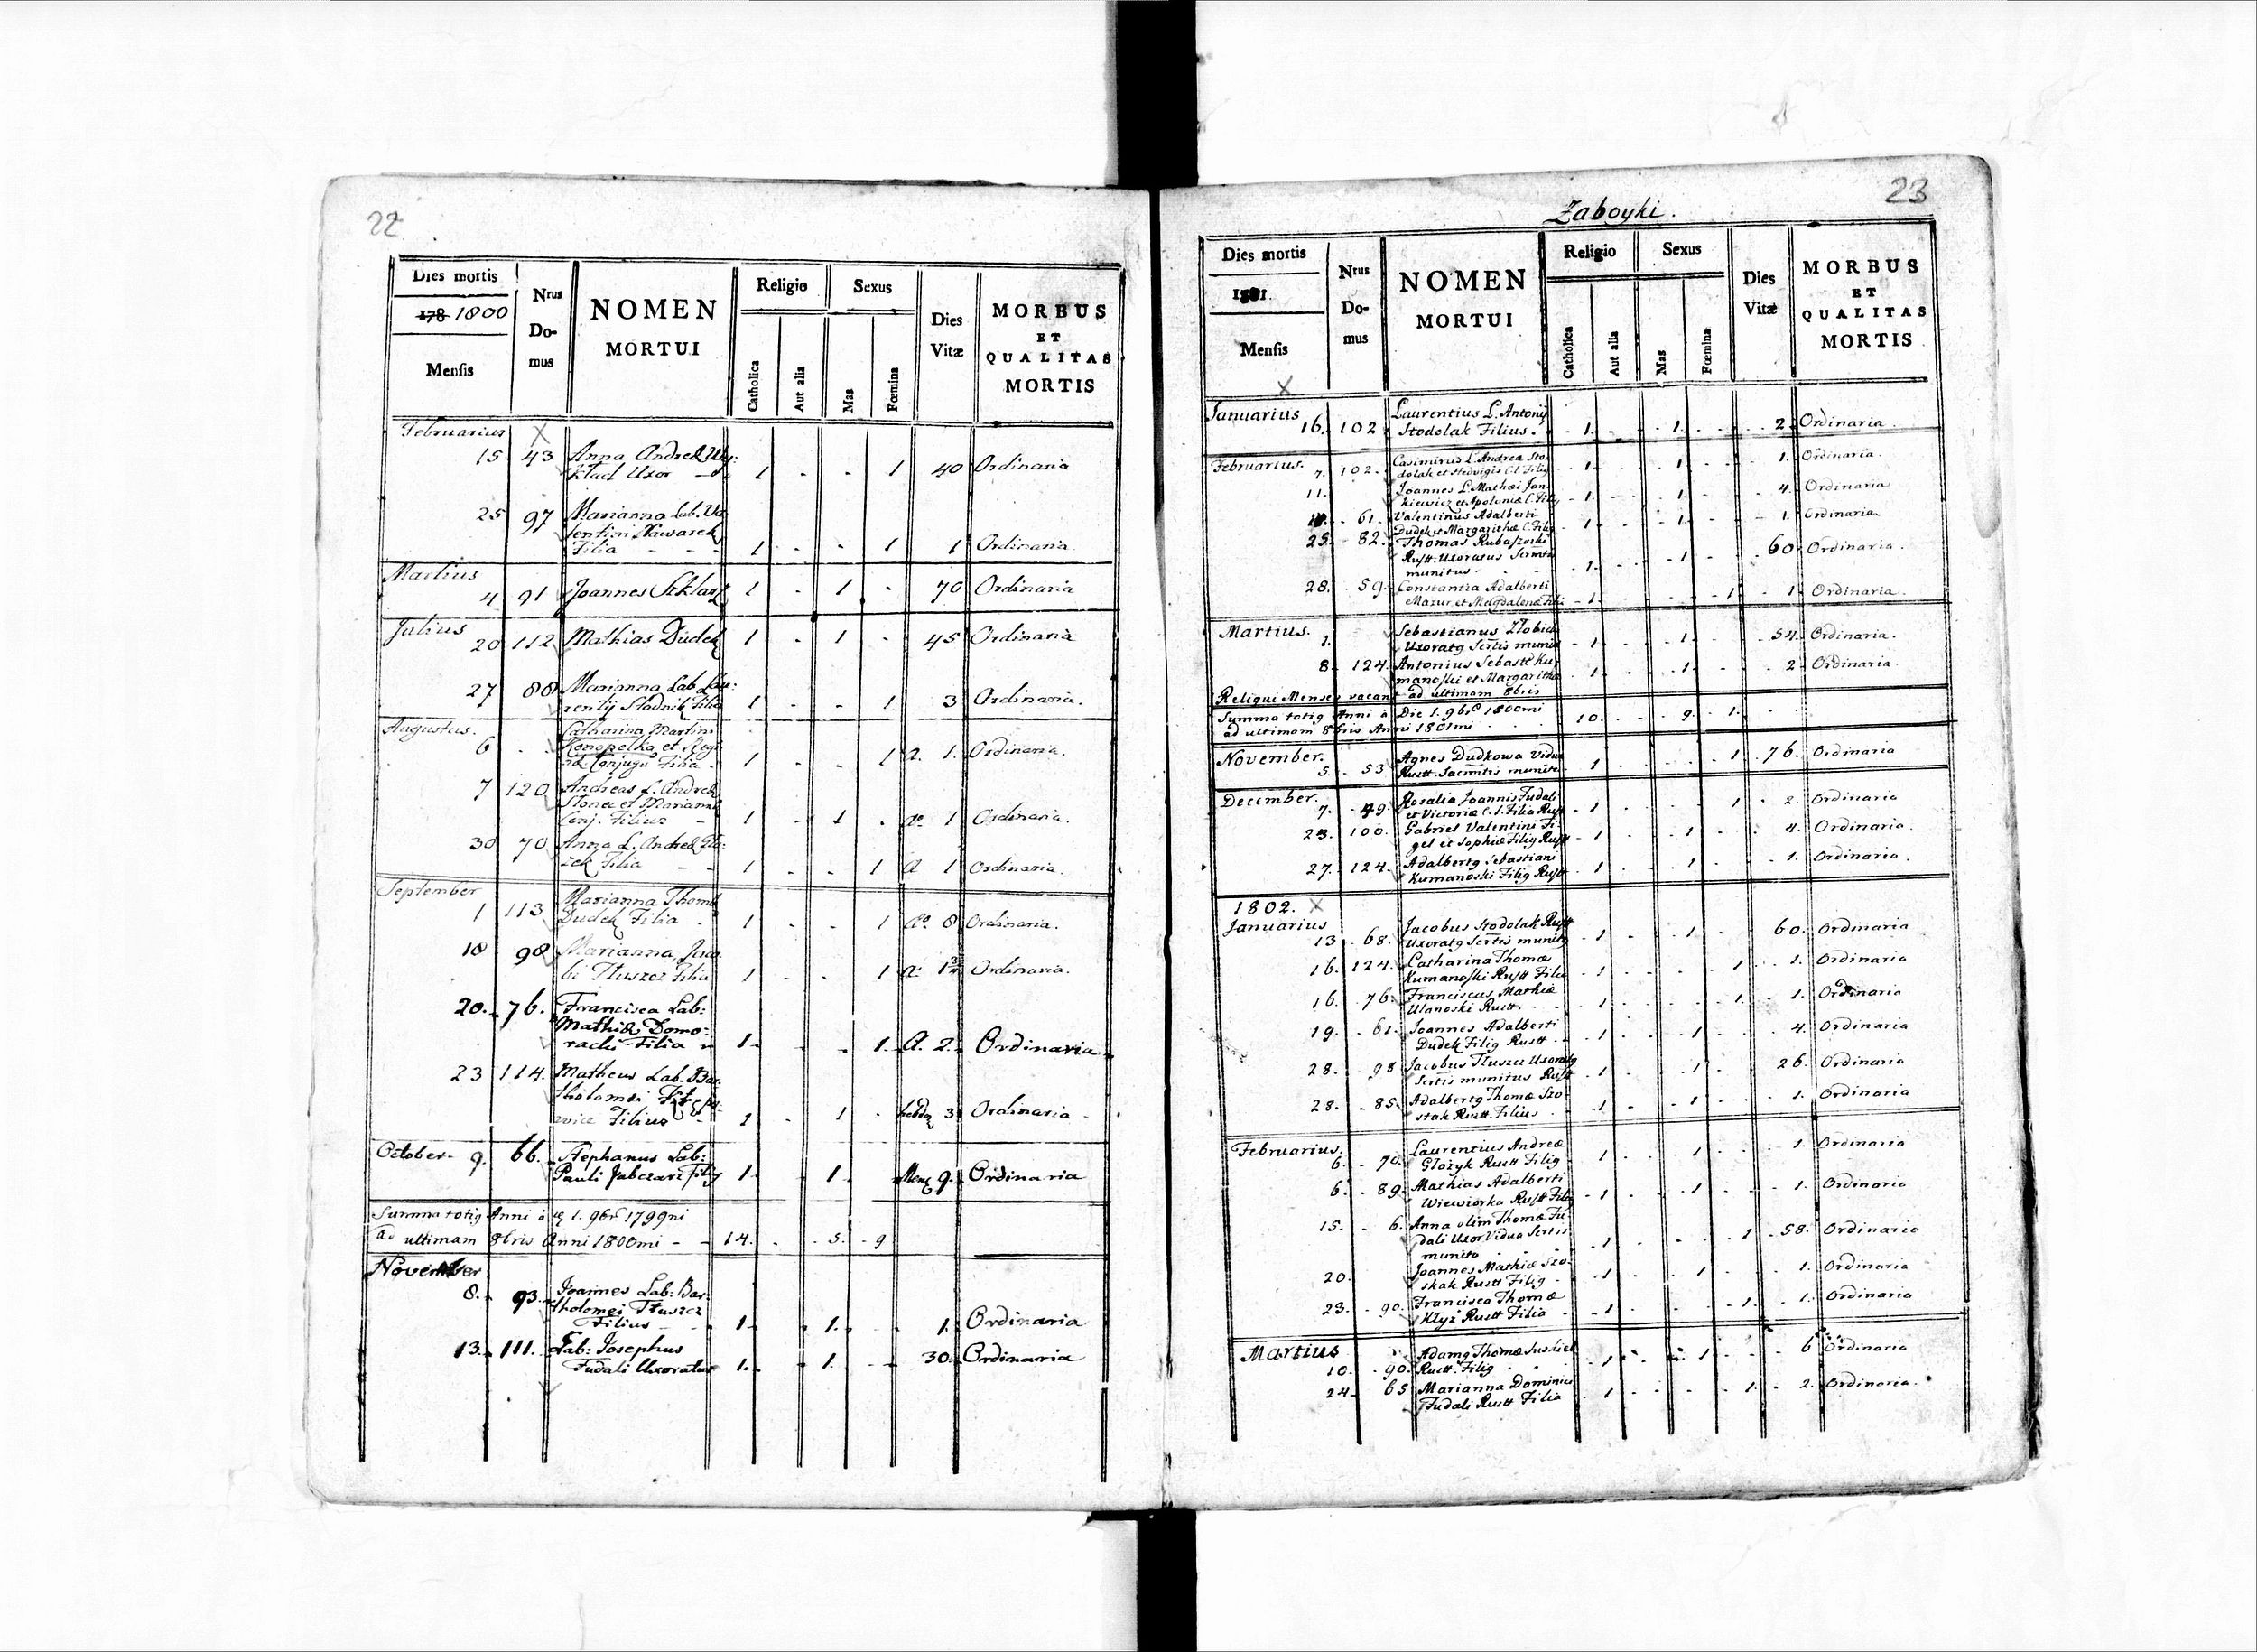 22
Dies mortis
178 1800
Mensis
Nrus
Do-
mus
NOMEN
MORTUI
Religio
Catholica
Aut alia
Sexus
Mas
Fœmina
Dies
Vitæ
MORBUS
ET
QUALITAS
MORTIS
Februarius
15 43 Anna Andreæ Wy:
ktad Uxor 1 - - 1 40 Ordinaria
25 97 Marianna Lab. Va
lentini Nawarek
Filia - - - 1 - - 1 1 Ordinaria
Martius
4 91 Joannes Szklarz 1 - 1 - 70 Ordinaria
Julius
20 112 Mathias Dudek 1 - 1 - 45 Ordinaria
27 88 Marianna Lab. Lau:
rentij Stadnik Filia 1 - - 1 3 Ordinaria.
Augustus.
6 - Catharina Martini
Konopelka et Regi
næ Conjugū Filia - 1 - - 1 a. 1. Ordinaria.
7 120 Andreas L. Andreæ
Słonea et Marianna
Conj. Filius - 1 - 1 - aº 1 Ordinaria.
30 70 Anna L. Andreæ Glo:
zek Filia - - 1 - - 1 a 1 Ordinaria.
September
1 113 Marianna Thomæ
Dudek Filia 1 - - 1 aº. 8 Ordinaria.
18 98 Marianna Jaco
bi Tłuszcz Filia 1 - - 1 a: 1 Ordinaria.
20. 76. Francisca Lab:
Mathiæ Domo:
racki Filia 1. - 1. A. 2. Ordinaria
23 114. Matheus Lab. Bar
tholomæi
Filius 1 - 1 - hebdo 3 Ordinaria -
October - 9. 66. Stephanus Lab:
Pauli Jabczarz filig 1. - 1. Mens 9. Ordinaria
Summa totig Anni à 1. 9br 1799ni
ad ultimam 8bris Anni 1800mi - - 14. - 5. 9
November
8. 93. Joannes Lab: Bar:
tholomei Tłuszcz
Filius - - 1. - 1. - 1. Ordinaria
13. 111. Lab: Josephus
Fudali Uxoratus 1. - 1. - 30. Ordinaria
23
Zaboyki.
Dies mortis
1801.
Mensis
Nrus
Do-
mus
NOMEN
MORTUI
Religio
Catholica
Aut alia
Sexus
Mas
Fœmina
Dies
Vitæ
MORBUS
ET
QUALITAS
MORTIS
Januarius
16. 102 Laurentius L. Antonij
Stodolak Filius. - 1. - 1. - 2. Ordinaria.
Februarius.
7. 102. Casimirus L. Andrea Sto
dolak et Hedvigis C. l. Filig - 1. - 1. 1. Ordinaria.
11. Joannes L. Mathæi Jan
kiewicz et Apoloniæ C. Filig - 1. - 1. - 4. Ordinaria
61. Valentinus Adalberti
Dudek et Margarithæ C. Filig - 1. - 1. - 1. Ordinaria.
25. 82. Thomas Rubaszoski
Rustt. Uxoratus Scrmtis
munitus. 1. - 1. - 60 Ordinaria.
28. 59. Constantia Adalberti
Mazur et Magdalenæ Fili - 1. - - 1. 1. Ordinaria.
Martius.
1. Sebastianus Złobicki
Uxoratg Scrtis munit - 1. - 1. - 54. Ordinaria.
8. 124. Antonius Sebasti Ku
manoski et Margaritha 1. - 1. - 2. Ordinaria.
Reliqui Menses vacant ad ultimam 8bris
Summa totig Anni à Die 1. 9bris 1800mi
ad ultimam 8bris Anni 1801mi 10. - 9. 1.
November.
5. 53 Agnes Dudkowa Vidua
Rustt. Sacrmtis munita. 1 - - 1. 76. Ordinaria
December.
7. 49. Rosalia Joannis Fudali
et Victoriæ C. l. Filia Rustt - 1 - - 1 2. Ordinaria
23. 100. Gabriel Valentini Fi
gel et Sophiæ Filig Rustt - 1 - 1 - 4. Ordinaria.
27. 124. Adalbertg Sebastiani
Kumanoski Filig Rustt - 1 - 1 - 1. Ordinaria.
1802.
Januarius
13 68. Jacobus Stodolak Rustt
Uxoratg Scrtis munitg - 1 - 1 - 60. Ordinaria
16. 124. Catharina Thomæ
Kumanoski Rustt Filia 1 - - 1. 1. Ordinaria
16. 76. Franciscus Mathiæ
Ulanoski Rustt. - 1 - - 1. 1. Ordinaria
19. 61. Joannes Adalberti
Dudek Filig Rustt - 1 - 1 - 4. Ordinaria
28. 98 Jacobus Tłuszcz Uxoratg
Scrtis munitus Rustt 1 - 1 - 26. Ordinaria
28. 85. Adalbertg Thomæ Szo
stak Rustt. Filius 1 - 1 - 1. Ordinaria
Februarius.
6. 70. Laurentius Andreæ
Głożyk Rustt Filig - 1 - 1 1. Ordinaria
6. 89. Mathias Adalberti
Wiewiorka Rustt Filig 1 - 1 - 1. Ordinaria
15. 6. Anna olim Thomæ Fu
dali Uxor Vidua Scrtis
munita 1 - - 1 58. Ordinaria
20. Joannes Mathiæ Szo
stak Rustt Filig - 1 - 1 - 1. Ordinaria
23. 90. Francisca Thomæ
Klyż Rustt Filia 1 - - 1. 1. Ordinaria
Martius
10. 90. Adamg Thomæ
Rustt Filig 1 - 1 - 6 Ordinaria
24. 65 Marianna Dominici
Fudali Rustt Filia 1 - - 1. 2. Ordinaria.